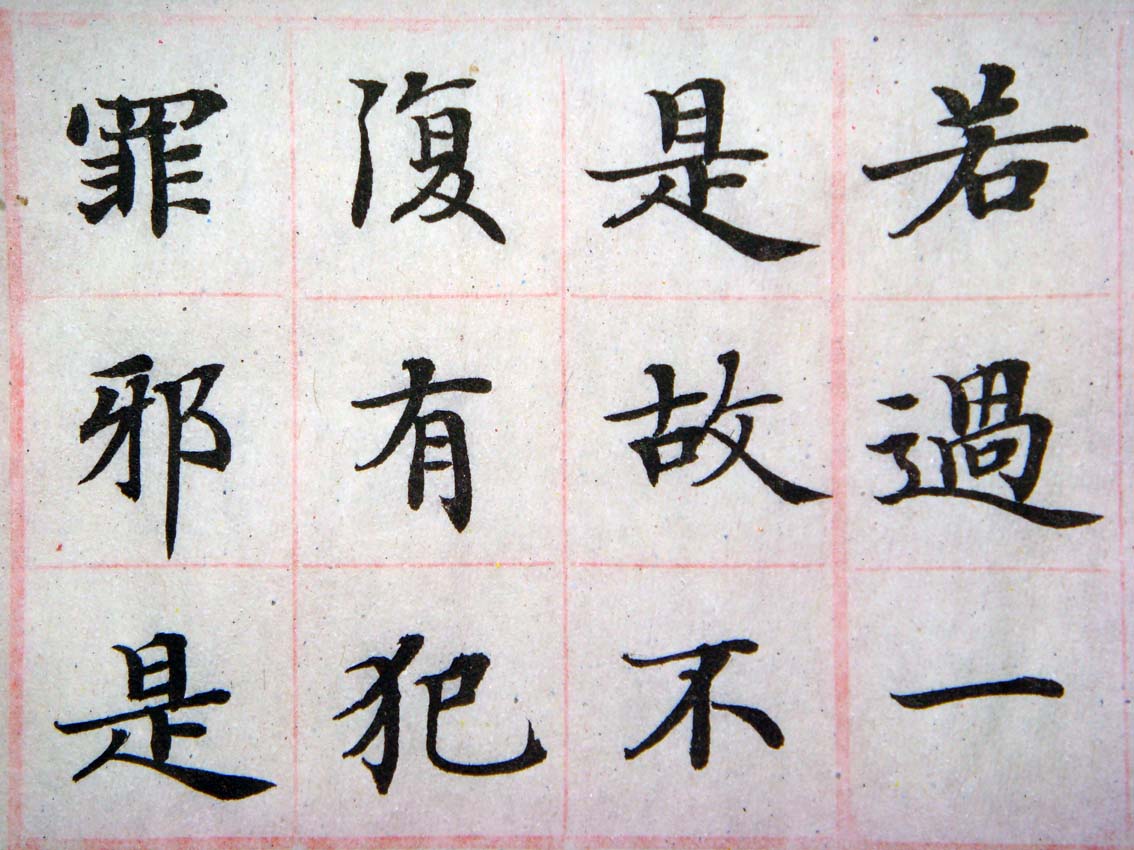 若過一
是故不
復有犯
罪邪是